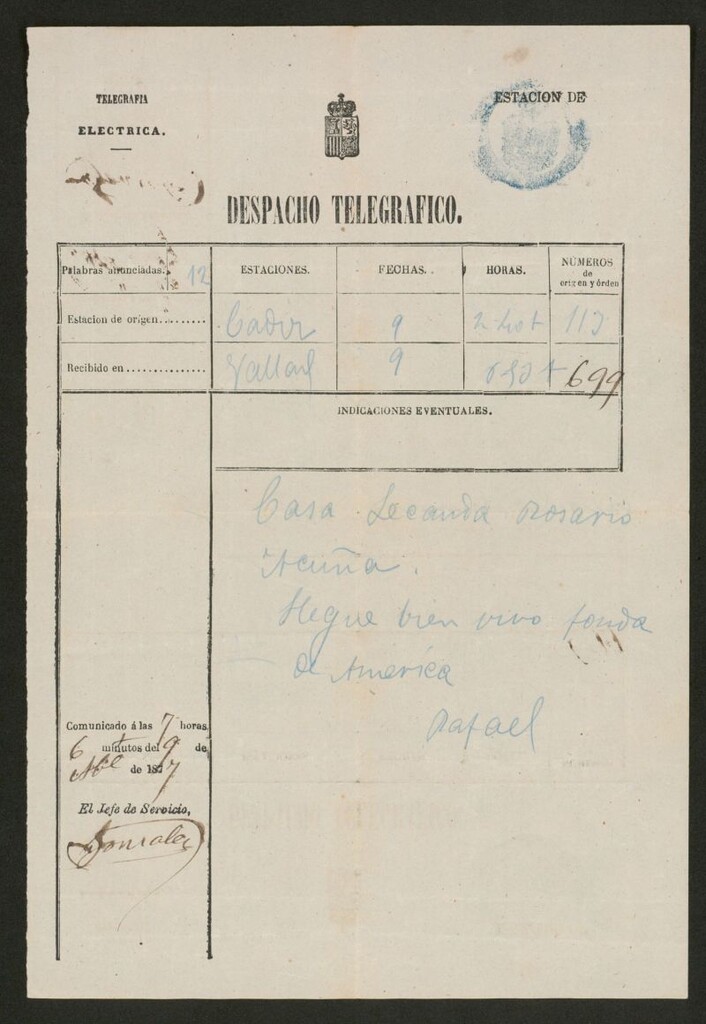 TELEGRAFIA
ELECTRICA.
ESTACION DE
DESPACHO TELEGRAFICO.
Palabras anunciadas. 12
ESTACIONES.
FECHAS.
HORAS.
NÚMEROS
de
origen y órden
Estacion de orígen........ Cadiz 9 113
Recibido en .............. 9 699
INDICACIONES EVENTUALES.
Casa Lecanda Rosario
Acuña.
Llegue bien vivo fonda
de America
Rafael
Comunicado á las 7 horas
6 minutos del 9 de
de 1877
El Jefe de Servicio,
Gonzalez